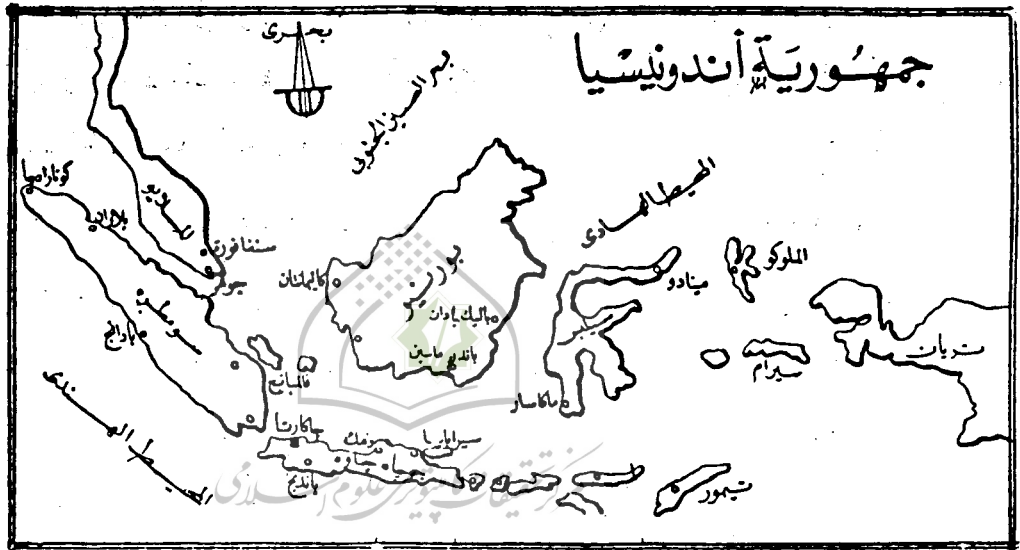 جمهورية أندونيسيا
بحرى
بحر الصين الجنوبي
المحيط الهادى
كوتاراجا
الملايو
سنغافورة
جوهر
سومطرة
بادانج
فالمبانج
المحيط الهندى
كاليمانتان
بورنيو
باليك بابان
باندجر ماسين
مينادو
سيليبس
ماكاسار
الملوكو
سيرام
جاكارتا
سيرابايا
جاوا
باندنج
تيمور
مركز تحقيقات كامپيوترى علوم اسلامى